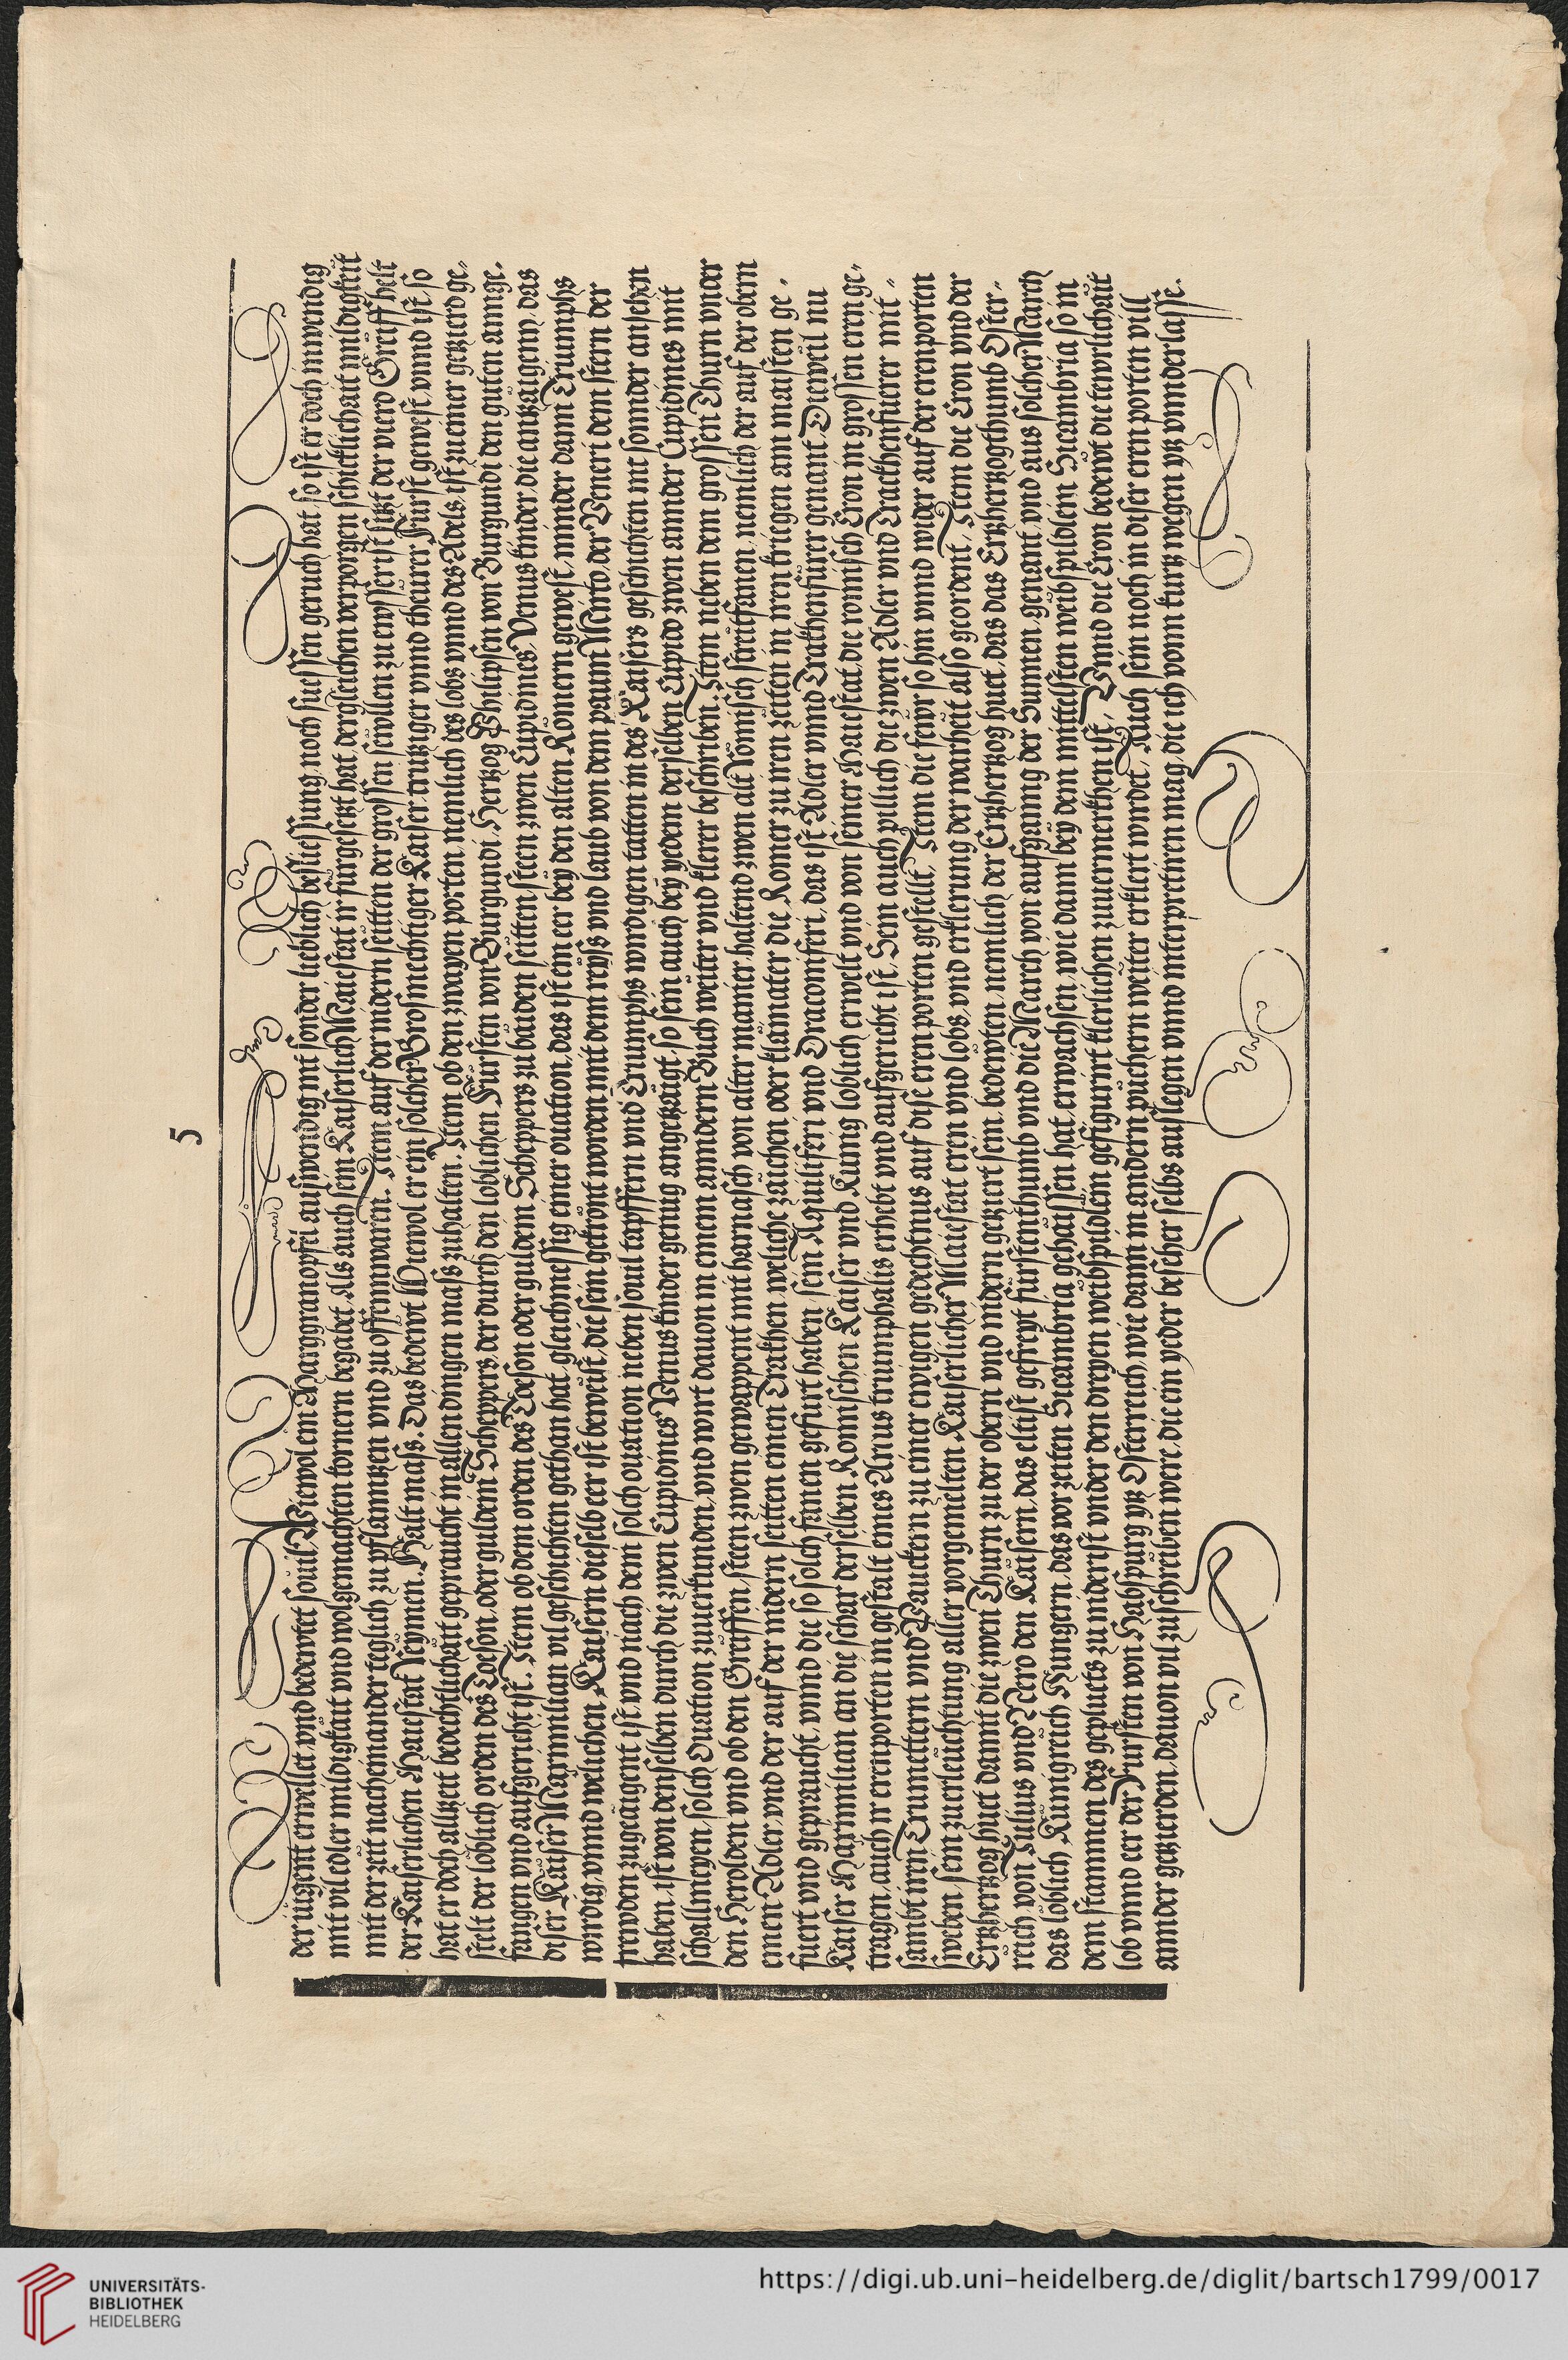 5
der jugent erwellet vnd bedewtet souil. Wiewol ein Marggranopfil auswendig mit sonder lieblich beschliessung noch suessen geruch hat, so ist er doch inwendig
mit vil edler mildigkait vnd wolgemachten kornern begabet. Als auch sein Kaiserlich Maiestat ir fürgesetzt hat, dergleichen verporgen schicklichait mildigkait
mit der zeit nacheinander teglich zu pflanntzen vnd zu offennwaren. Item auf der nidern seitten der grossen sewllen zu ewsserist sitzt der vierd Greiff helt
der Kaiserlichen Maiestat Reymen. Halt mass. Das bedewt Wiewol er ein solcher Grosmechtiger Kaiser, trutziger vnnd theurer Fürst gewest, vnnd ist, so
hat er doch altzeit bedechtlichait gepraucht in allen dingen mass zuhalten. Item ob den zwayen porten, nemlich des lobs vnnd des Adels, ist zu einer getzierd ge-
stelt der löblich orden des Toeson, oder guldein Scheppers, der durch den loblichen Fürsten von Burgundi, Hertzog Philipsen von Burgundi den guten annge-
fangen vnd aufgericht ist. Item ob dem orden des Toeson oder guldein Scheppers zu baiden seitten steen zwen Cupidines, Venus kinder, die antzaigenn, das
diser Kaiser Maximilian vil geschichten gethan hat, gleichmessig einer ouation, das ist ein eer bey den alten Römern gewest, minder dann Triumphs
wirdig, vnnd welichen Kaisern dieselb eer ist beweist, die sein gekrönt worden mit dem reyss vnd laub von dem paum Mirto, der Veneri dem stern der
frewden zugeaigent ist, vnd nach dem solch ouation neben souil tapffern vnd Triumphs wirdigen tatten in des Kaisers geschichten nit sonnder ansehen
haben, ist von denselben durch die zwen Cupidines Venus kinder genug angetzaigt, so sein auch bey yedem derselben Cupido zwen annder Cupidines mit
schallmeyen, solch Ouation zuuerkunden, vnd wirt dauon in einem anndern Buch weiter vnd klerer beschriben. Item neben dem grossen Thurn vnder
den Herolden vnd ob den Greiffen, steen zwen gewappent mit harnasch von alter manier, haltend zwen alt Romisch streitfanen, nemlich der auf der obern
einen Adler, vnd der auf der nidern seitten einen Trakhen, weliche zaichen, oder klainater die Romer zu iren zeitten in iren kriegen am maisten ge-
fuert vnd gepraucht, vnnd die so solch fanen gefurt haben, sein Aquiliferi vnd Draconiferi, das ist Adler vnnd Trakhenfürer genant, Dieweil nu
Kaiser Maximilian an die schar derselben Romischen Kaiser vnd Kunig loblich erwelt vnd von seiner Maiestat, die romisch Cron in grossen eren ge-
tragen, auch ir erenporten in gestalt eines Arius triumphalis erhebt vnd aufgericht ist, Sein auch pillich die zwen Adler vnd Trackhenfuerer mit-
sambt iren Trumettern vnd Pauckern zu einer ewigen gedechtnus auf dise eren porten gestellt. Item die fewr so hin vnnd wider auf der erenporten
sweben, sein zuerleüchtung aller vorgemelten Kaiserlicher Maiestat eren vnd lobs, vnd erklerung der warheit also geordent, Item die Cron vnd der
Ertzhertzog huet damit die zwen Thürn zu der obern vnd nidern getziert sein, bedewten, nemlich der Ertzhertzog huet, das das Ertzhertzogthumb Oster-
reich von Julius vnd Nero den Kaisern, das eltist gefreyt fürstenthumb vnd die March von aufganng der Sunnen, genant, vnd aus solcher March
das loblich Künigreich Hungern, das vor zeiten Sicambria gehaissen hat, erwachsen, wie dann bey dem mittelsten weibspildlen, Sicambria so in
dem stammen des gepluets zu niderist vnder den dreyen weibspildlen gefigurirt klerlichen zuuermerkhen ist, Vnnd die Cron bedewt die tewrlichait
lob vnnd eer der Fursten von Habspurg yz Osterreich, wie dann in andern püchern weiter erklert wirdet, Auch sein noch in diser eren porten vill
annder getzierden, dauon vil zuschreiben were, die ein yeder bescher selbs auslegen vnnd interpretiren mag, die ich vonn kurtz wegen yz vnnderlasse.
UNIVERSITÄTS-
BIBLIOTHEK
HEIDELBERG
https://digi.ub.uni-heidelberg.de/diglit/bartsch1799/0017